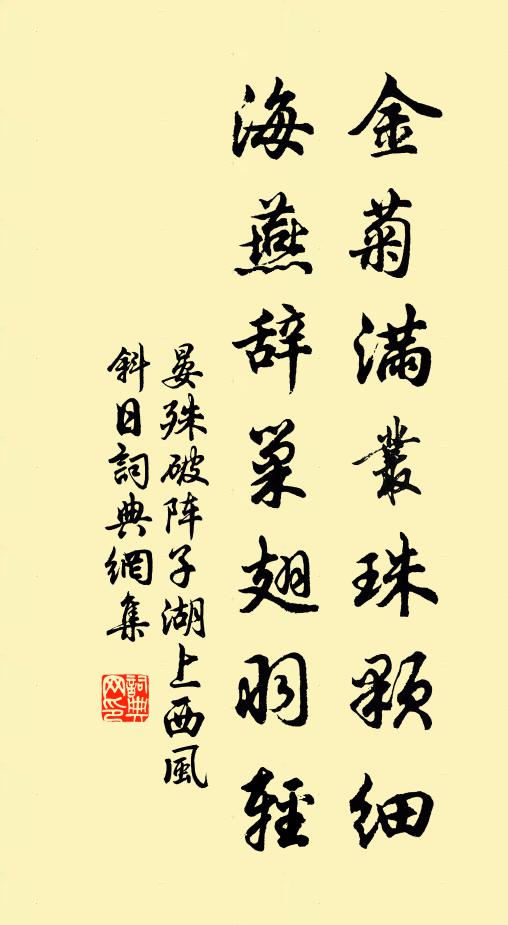 金菊滿叢珠顆細
海燕辞巢翅羽輕
晏殊破阵子湖上西風
斜日詞典網集
詞典网印